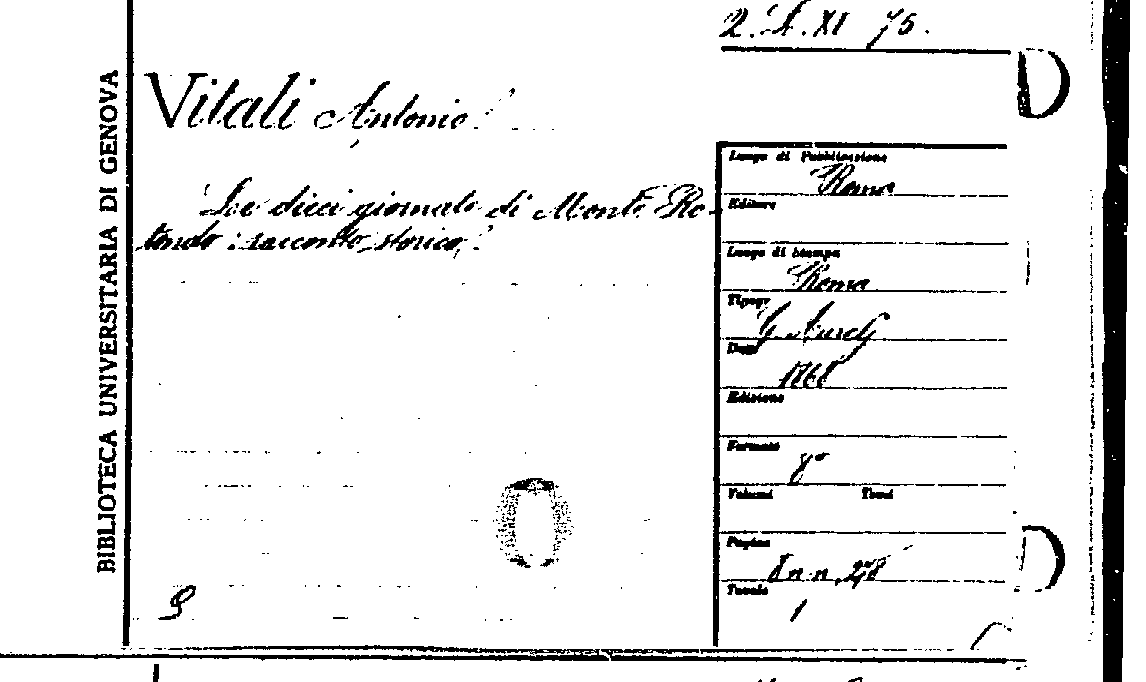 2. A. XI 75.
BIBLIOTECA UNIVERSITARIA DI GENOVA
Vitali Antonio.
Le dieci giornate di Monte Ro-
tondo: racconto storico.
Luogo di Pubblicazione
Roma
Editore
Luogo di Stampa
Roma
Tipogr
G. Aurelj
Data
1868
Edizione
Formato
8º
Volumi Tomi
Pagine
8 n. n., 248
Tavole
1